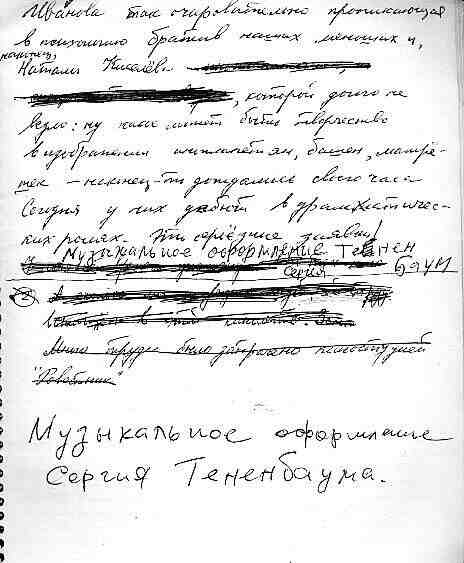 Иванова так очаровательно проникающая
в психологию братьев наших меньших и,
наконец,
Наталия Киселёва
, которой долго не
везло: ну какое может быть творчество
в изображении инопланетян, башен, матрё-
шек – наконец-то дождались своего часа
Сегодня у них дебют в драматичес-
ких ролях. Эти серьёзные заявки!
Музыкальное оформление Тенен
Сергия БАУМ
Много труда было затрачено киностудией
Музыкальное оформление
Сергия Тененбаума.